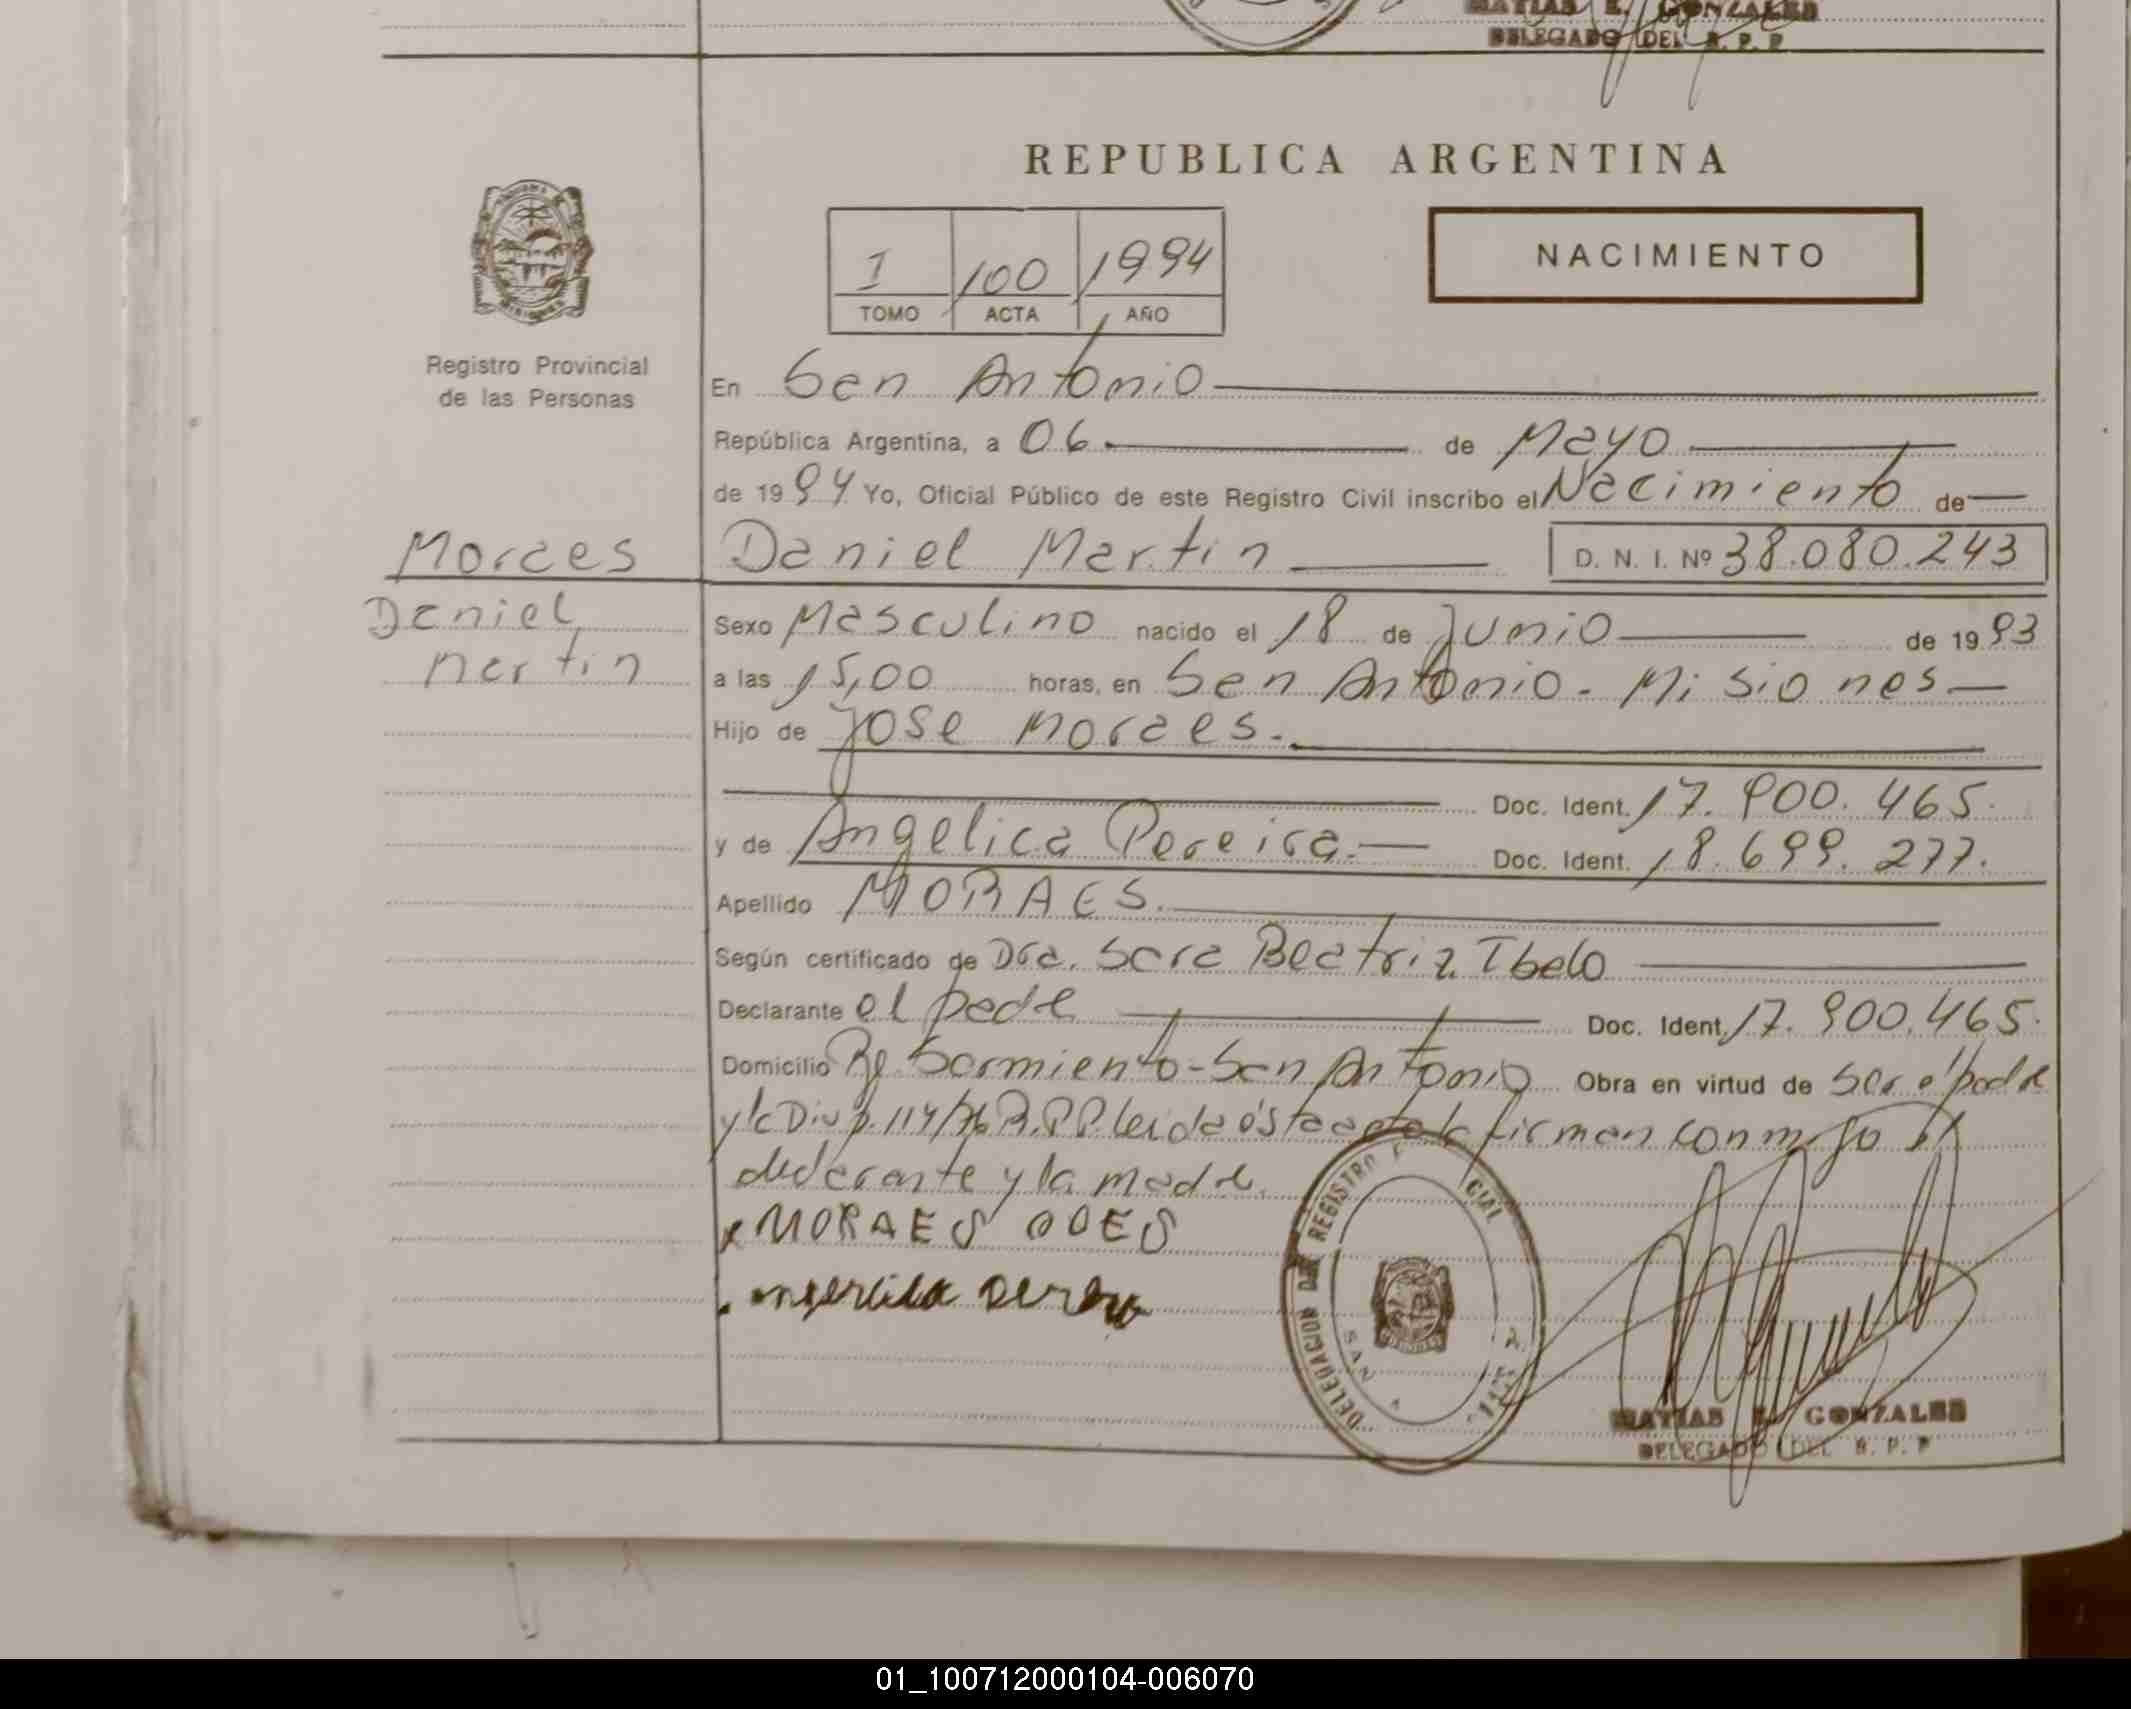 MATIAS E. GONZALES
DELEGADO DEL R. P. P
REPUBLICA ARGENTINA
I 100 1994
TOMO ACTA AÑO
NACIMIENTO
Registro Provincial
de las Personas
En San Antonio
República Argentina, a 06 de Mayo
de 1994 Yo, Oficial Público de este Registro Civil inscribo el Nacimiento de
Moraes
Daniel
Martin
Daniel Martin D. N. I. Nº 38.080.243
Sexo Masculino nacido el 18 de Junio de 1993
a las 15,00 horas, en San Antonio - Misiones
Hijo de Jose Moraes.
Doc. Ident. 17.900.465.
y de Angelica Pereira. Doc. Ident. 18.699.277.
Apellido MORAES.
Según certificado de Dra. Sara Beatriz Tbelo
Declarante el padre Doc. Ident. 17.900.465.
Domicilio Bº Sarmiento - San Antonio Obra en virtud de Ser el padre
y la Disp. 114/76 R.P.P. leida ésta acta la firman conmigo el
declarante y la madre.
x MORAES
DELEGACION DEL REGISTRO CIAL
SAN
MATIAS E. GONZALES
DELEGADO DEL R. P. P
01_100712000104-006070